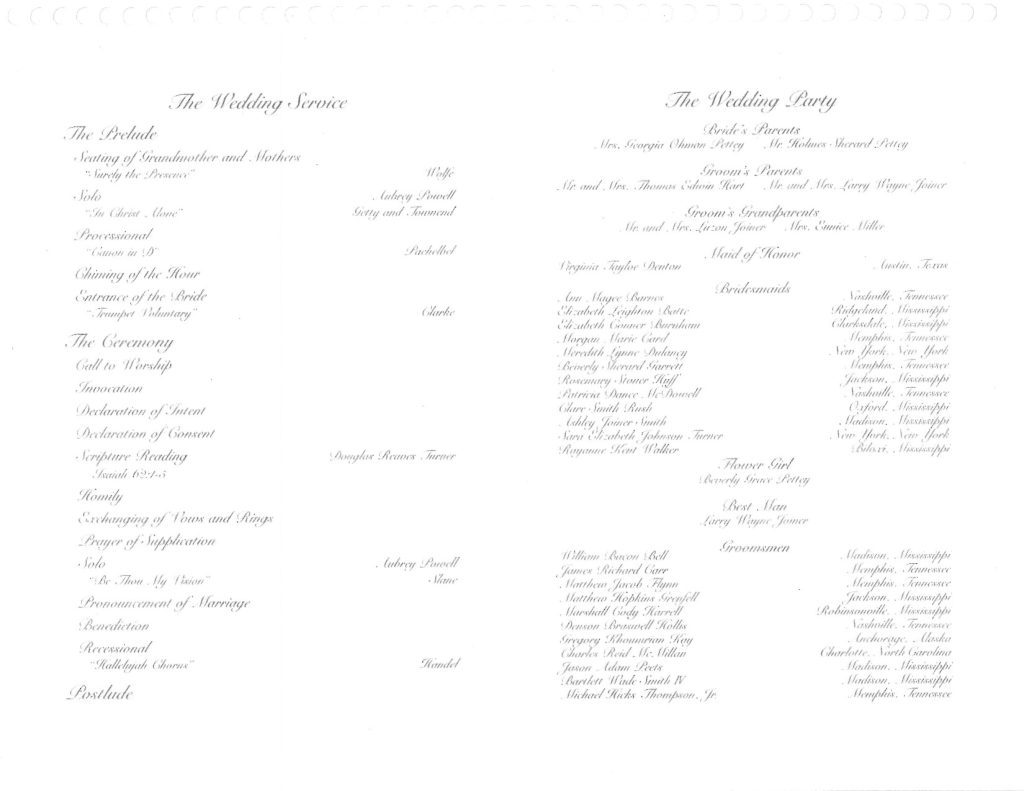 The Wedding Service
The Prelude
Seating of Grandmother and Mothers
"Surely the Presence" Wolfe
Solo Aubrey Powell
"In Christ Alone" Getty and Townend
Processional
"Canon in D" Pachelbel
Chiming of the Hour
Entrance of the Bride
"Trumpet Voluntary" Clarke
The Ceremony
Call to Worship
Invocation
Declaration of Intent
Declaration of Consent
Scripture Reading Douglas Reaves Turner
Isaiah 62:4-5
Homily
Exchanging of Vows and Rings
Prayer of Supplication
Solo Aubrey Powell
"Be Thou My Vision" Slane
Pronouncement of Marriage
Benediction
Recessional
"Hallelujah Chorus" Handel
Postlude
The Wedding Party
Bride's Parents
Mrs. Georgia Ohman Pettey Mr. Holmes Sherard Pettey
Groom's Parents
Mr. and Mrs. Thomas Edwin Hart Mr. and Mrs. Larry Wayne Joiner
Groom's Grandparents
Mr. and Mrs. Luzon Joiner Mrs. Eunice Miller
Maid of Honor
Virginia Tayloe Denton Austin, Texas
Bridesmaids
Ann Magee Barnes Nashville, Tennessee
Elizabeth Leighton Batte Ridgeland, Mississippi
Elizabeth Conner Burnham Clarksdale, Mississippi
Morgan Marie Card Memphis, Tennessee
Meredith Lynne Dulaney New York, New York
Beverly Sherard Garrett Memphis, Tennessee
Rosemary Stoner Huff Jackson, Mississippi
Patricia Dance McDowell Nashville, Tennessee
Clare Smith Rush Oxford, Mississippi
Ashley Joiner Smith Madison, Mississippi
Sara Elizabeth Johnson Turner New York, New York
Rayanne Kent Walker Biloxi, Mississippi
Flower Girl
Beverly Grace Pettey
Best Man
Larry Wayne Joiner
Groomsmen
William Bacon Bell Madison, Mississippi
James Richard Carr Memphis, Tennessee
Matthew Jacob Flynn Memphis, Tennessee
Matthew Hopkins Grenfell Jackson, Mississippi
Marshall Cody Harrell Robinsonville, Mississippi
Denson Braswell Hollis Nashville, Tennessee
Gregory Kay Anchorage, Alaska
Charles Reid McMillan Charlotte, North Carolina
Jason Adam Peets Madison, Mississippi
Bartlett Wade Smith IV Madison, Mississippi
Michael Hicks Thompson, Jr. Memphis, Tennessee